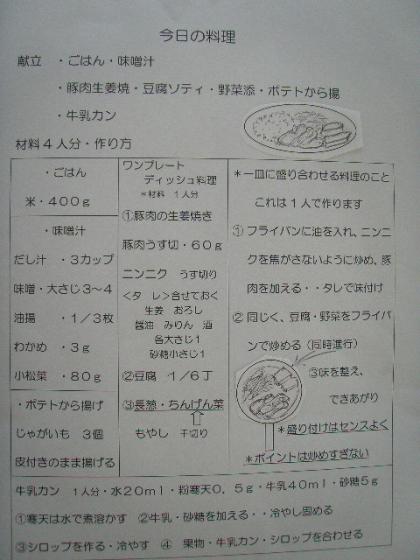 今日の料理
献立 ・ごはん・味噌汁
・豚肉生姜焼・豆腐ソティ・野菜添・ポテトから揚
・牛乳カン
材料４人分・作り方
・ごはん
米・４００ｇ
・味噌汁
だし汁 ・３カップ
味噌・大さじ３〜４
油揚 ・１／３枚
わかめ ・３ｇ
小松菜 ・８０ｇ
・ポテトから揚げ
じゃがいも ３個
皮付きのまま揚げる
ワンプレート
ディッシュ料理
＊材料 １人分
①豚肉の生姜焼き
豚肉うす切・６０ｇ
ニンニク うす切り
＜タ レ＞合せておく
生姜 おろし
醤油 みりん 酒
各大さじ１
砂糖小さじ１
②豆腐 １／６丁
③長葱・ちんげん菜
もやし 干切り
＊一皿に盛り合わせる料理のこと
これは１人で作ります
① フライパンに油を入れ、ニンニ
クを焦がさないように炒め、豚
肉を加える・・タレで味付け
② 同じく、豆腐・野菜をフライパ
ンで炒める（同時進行）
③味を整え、
できあがり
＊盛り付けはセンスよく
＊ポイントは炒めすぎない
牛乳カン １人分・水２０ｍｌ・粉寒天０．５ｇ・牛乳４０ｍｌ・砂糖５ｇ
①寒天は水で煮溶かす ②牛乳・砂糖を加える・・冷やし固める
③シロップを作る・冷やす ④ 果物・牛乳カン・シロップを合わせる